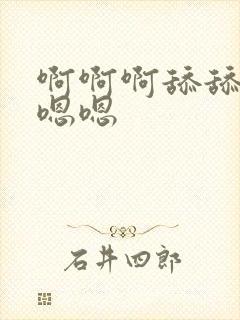 啊啊啊舔舔
嗯嗯
石井四郎